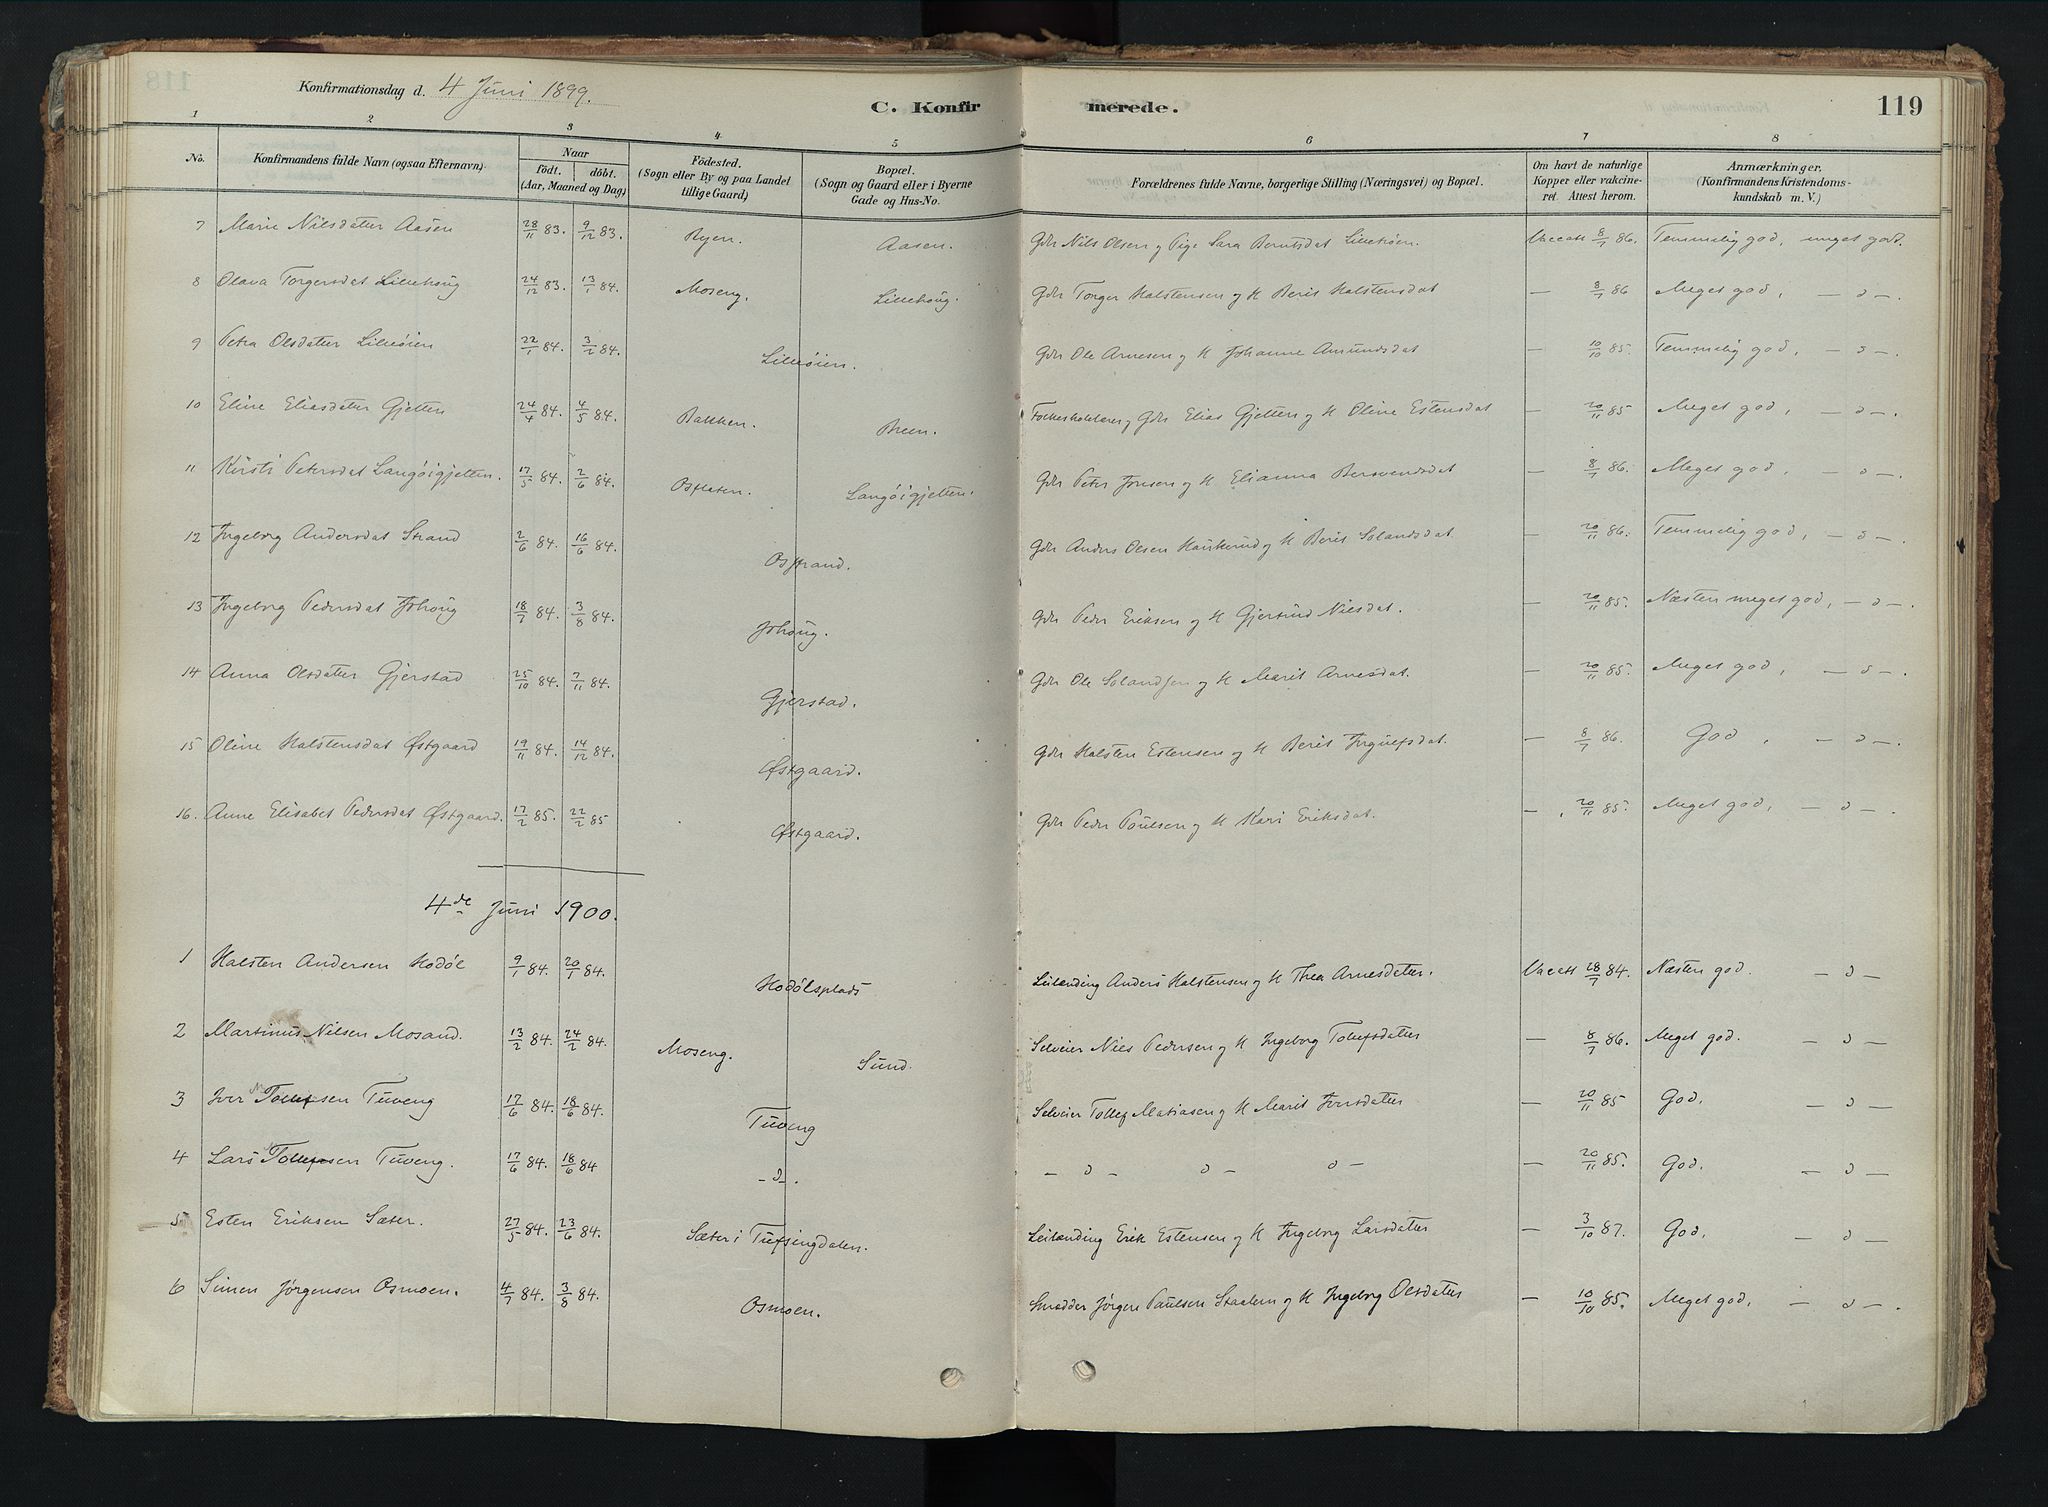 Konfirmationsdag d. 4 Juni 1899.
C. Konfirmerede.
119
1 2 3 4 5 6 7 8
No. Konfirmandens fulde Navn (ogsaa Efternavn). Naar födt. döbt. (Aar, Maaned og Dag) Födested. (Sogn eller By og paa Landet tillige Gaard) Bopæl. (Sogn og Gaard eller i Byerne Gade og Hus-No. Forældrenes fulde Navne, borgerlige Stilling (Næringsvei) og Bopæl. Om havt de naturlige Kopper eller vakcineret. Attest herom. Anmærkninger. (Konfirmandens Kristendomskundskab m. V.)
7 Marie Nilsdatter Aasen 28/11 83. 9/12 83. Ryen. Aasen. Gdr Nils Olsen og Pige Sara Berntsdat Lilleøien. Vaccett 8/7 86. Temmelig god, meget god.
8 Olava Torgersdat Lillehoug 24/12 83. 13/1 84. Moseng. Lillehoug. Gdr Torger Halstensen og H Berit Halstensdat — 8/7 86 Meget god, — d —.
9 Petra Olsdatter Lilleøien 22/1 84. 3/2 84. Lilleøien. Gdr Ole Arnesen og H Johanne Amundsdat — 10/10 85. Temmelig god, — d —.
10 Eline Eliasdatter Gjelten 24/4 84. 4/5 84. Bakken. Breen. Folkeskolelærer og Gdr Elias Gjelten og H Oline Estensdat — 20/11 85 Meget god, — d —.
11 Kirsti Petersdat Langøigjelten. 17/5 84. 2/6 84. Osflaten. Langøigjelten. Gdr Peter Jonsen og H Elianna Bersvendsdat — 8/7 86. Meget god, — d —.
12 Ingeborg Andersdat Strand 2/6 84. 16/6 84. Osstrand. Gdr Anders Olsen Haukerud og H Berit Solandsdat — 20/11 86. Temmelig god, — d —.
13 Ingeborg Pedersdat Johoug 18/7 84. 3/8 84. Johoug. Gdr Peder Eriksen og H Gjertrud Nilsdat. — 20/11 85. Næsten meget god, — d —.
14 Anna Olsdatter Gjerstad 25/10 84. 7/11 84. Gjerstad. Gdr Ole Solandsen og H Marit Arnesdat. — 20/11 85. Meget god, — d —.
15 Oline Halstensdat Østgaard 19/11 84. 14/12 84. Østgaard. Gdr Halsten Estensen og H Berit Ingulfsdat. — 8/7 86. God, — d —.
16. Anne Elisabet Pedersdat Østgaard. 17/2 85. 22/2 85 Østgaard. Gdr Peder Poulsen og H Kari Eriksdat. — 20/11 85. Meget god, — d —.
4de Juni 1900.
1 Halsten Andersen Hodøl 9/1 84. 20/1 84. Hodølsplads Leilænding Anders Halstensen og H Thea Arnesdatter. Vaccett 28/7 84. Næsten god. — d —
2 Martinus Nilsen Mosand. 13/2 84. 24/2 84. Moseng. Sund. Selveier Niels Pedersen og H Ingeborg Tollefsdatter — 8/7 86. Meget god. — d —
3 Iver Tollefsen Tuveng 17/6 84. 18/6 84. Tuveng Selveier Tollef Matiasen og H Marit Jonsdatter — 20/11 85 God. — d —
4 Lars Tollefsen Tuveng. 17/6 84. 18/6 84 — d —. — d — d — d — — 20/11 85. God. — d —
5 Esten Eriksen Sæter. 27/5 84. 23/6 84. Sæter i Tufsingdalen. Leilænding Erik Estensen og H Ingeborg Larsdatter — 3/10 87. God. — d —
6 Simen Jørgensen Osmoen. 4/7 84. 3/8 84. Osmoen. Jørgen Paulsen og H Ingeborg Olsdatter — 10/10 85. Meget god. — d —.